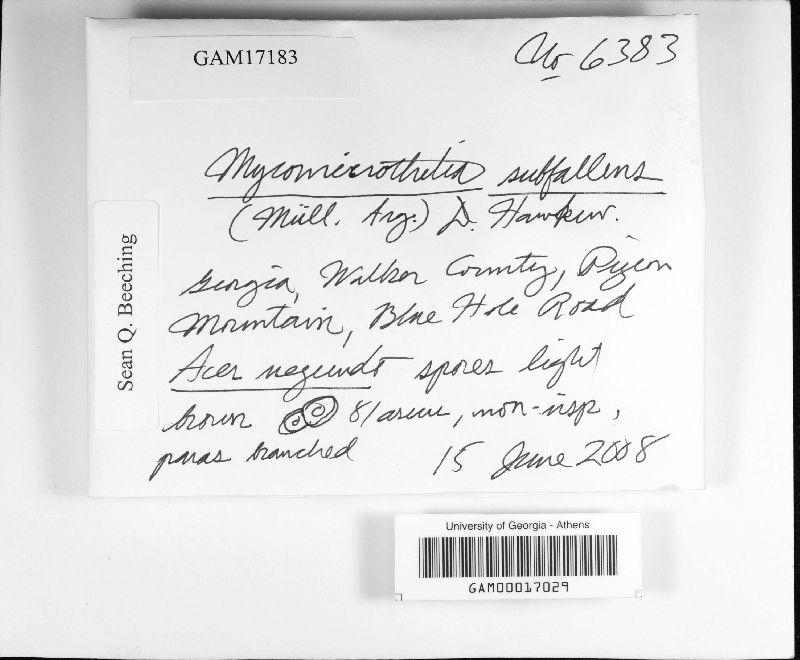 GAM17183
No 6383
Mycomicrothelia subfallens
(Müll. Arg.) D. Hawksw.
Georgia, Walker County, Pigeon
Mountain, Blue Hole Road
Acer negundo spores light
brown 8/ascus, non-insp,
paras branched
15 June 2008
Sean Q. Beeching
University of Georgia - Athens
GAM00017029